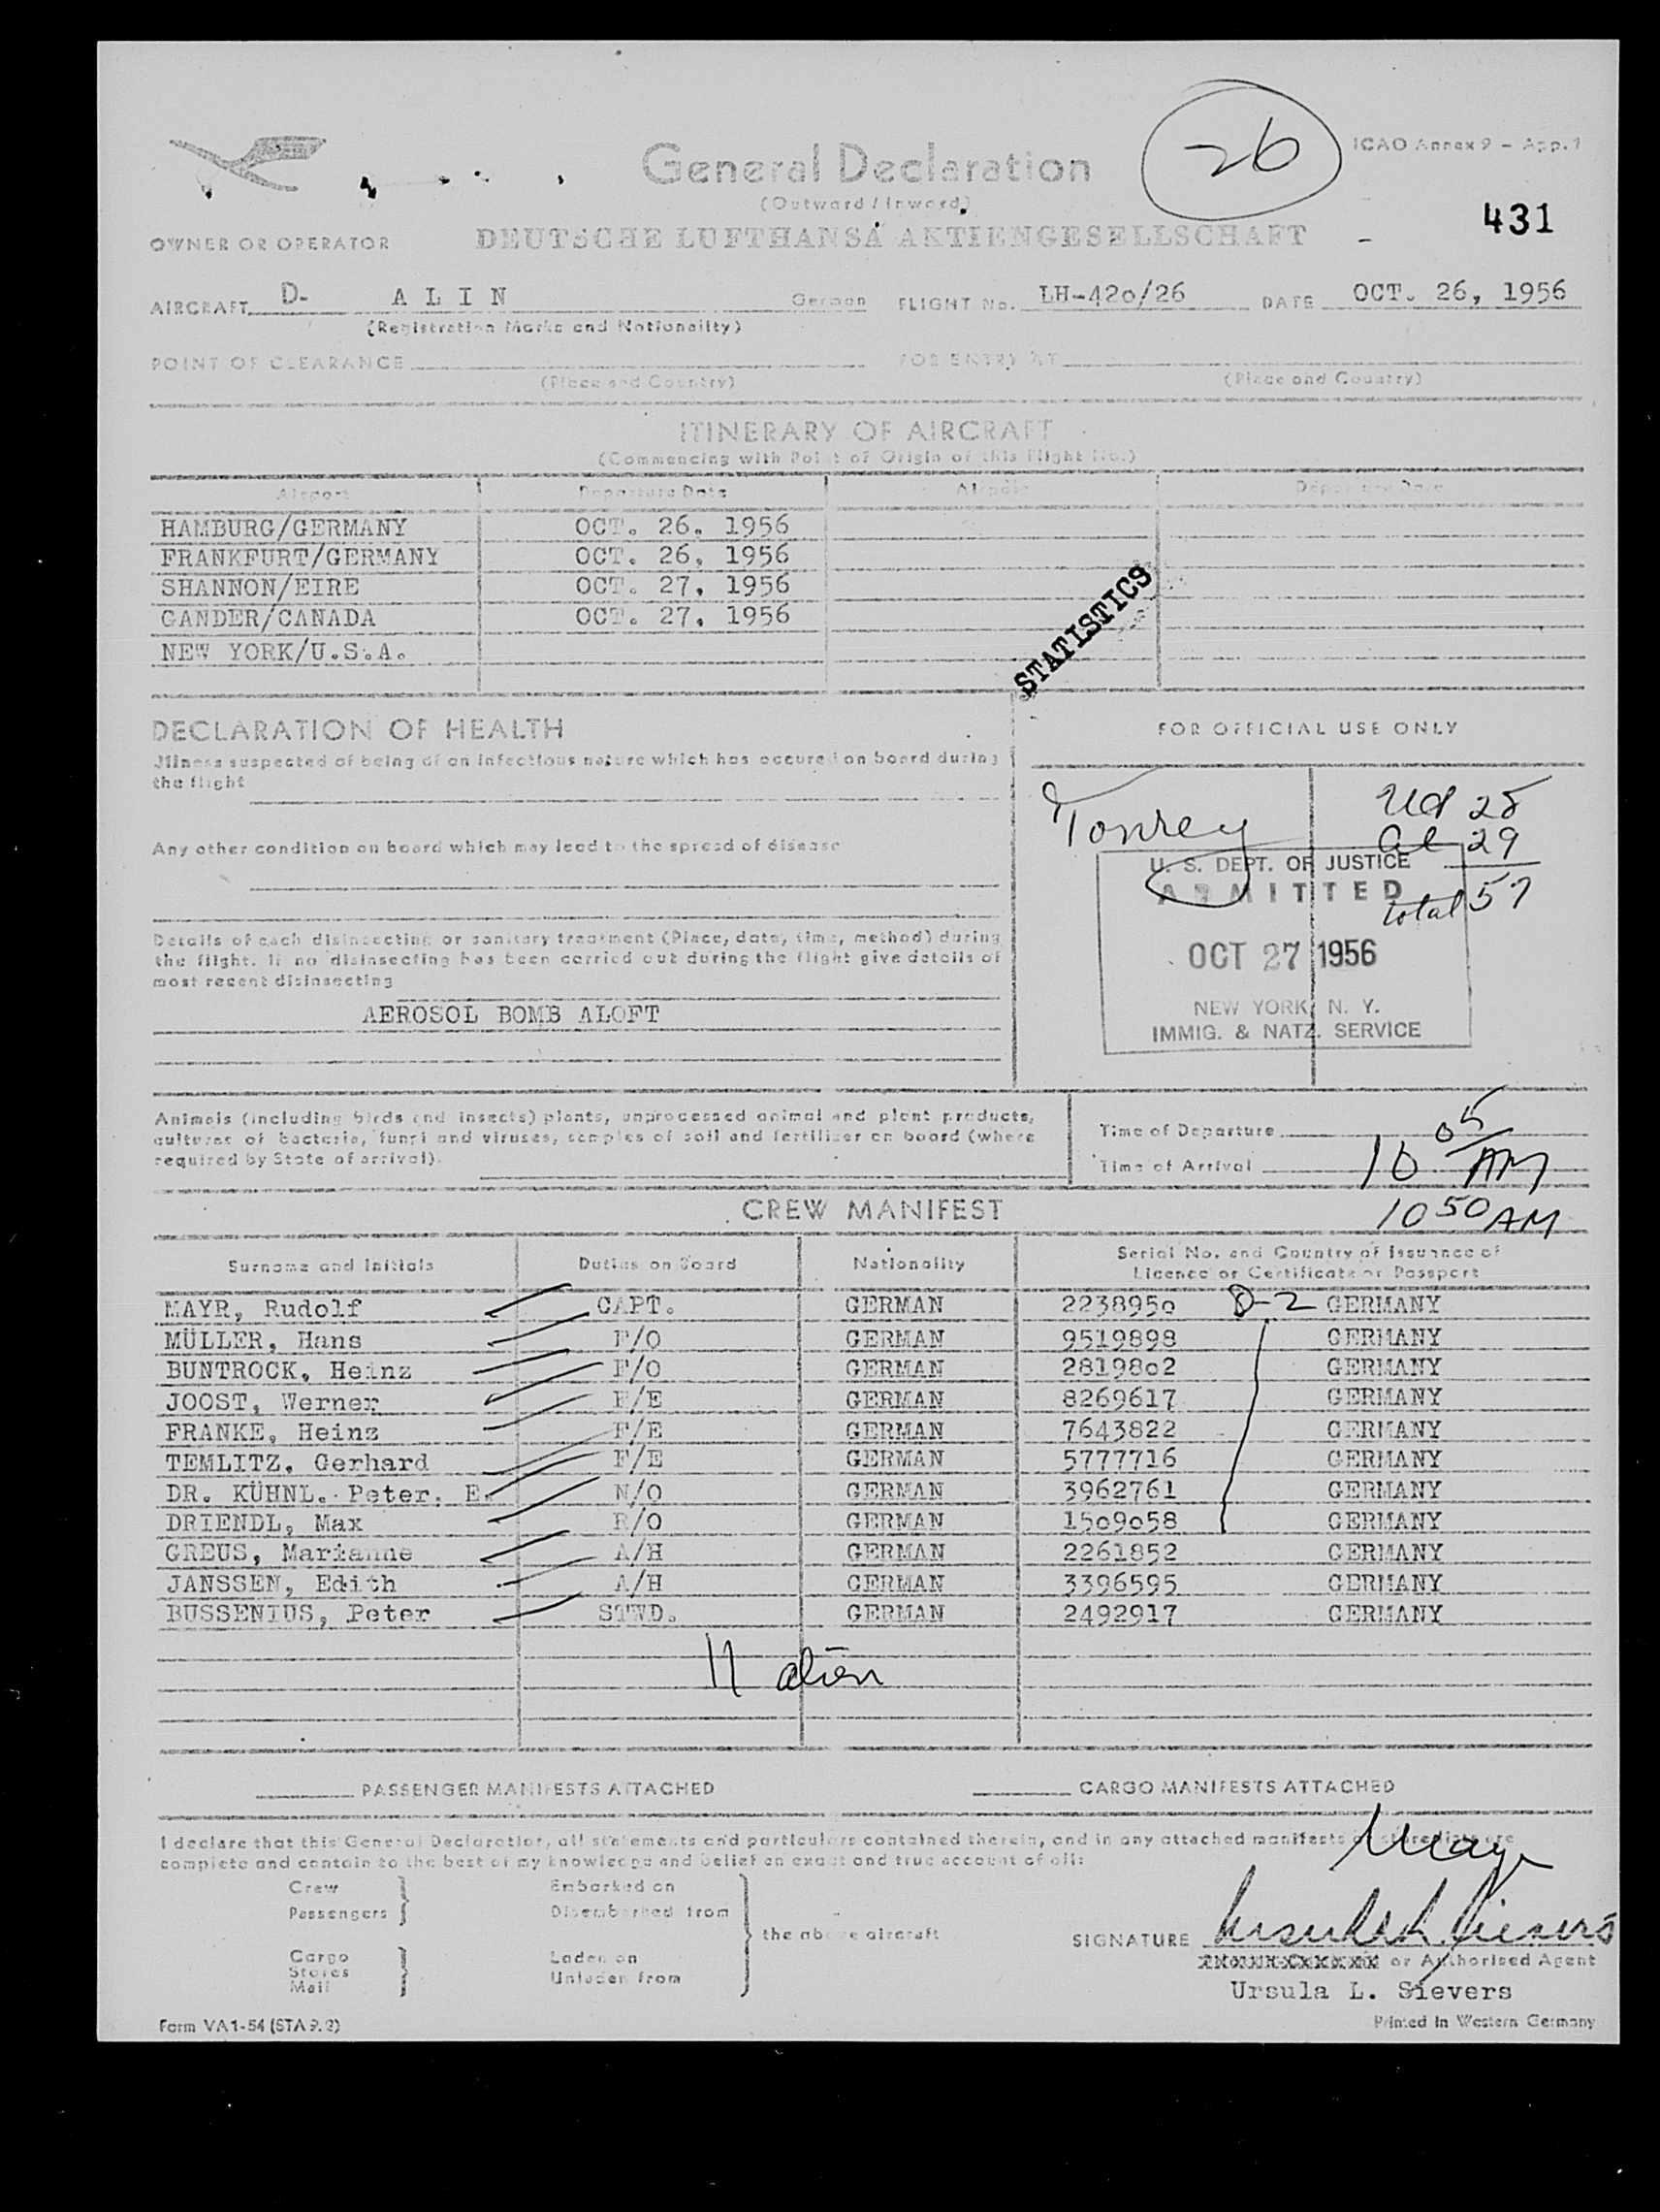 26
ICAO Annex 9 – App. 1
General Declaration
(Outward / Inward)
431
OWNER OR OPERATOR DEUTSCHE LUFTHANSA AKTIENGESELLSCHAFT
AIRCRAFT D- A L I N German FLIGHT No. LH-42o/26 DATE OCT. 26, 1956
(Registration Marks and Nationality)
POINT OF CLEARANCE FOR ENTRY AT
(Place and Country) (Place and Country)
ITINERARY OF AIRCRAFT
(Commencing with Point of Origin of this Flight No.)
Airport Departure Date Airport Departure Date
HAMBURG/GERMANY OCT. 26, 1956
FRANKFURT/GERMANY OCT. 26, 1956
SHANNON/EIRE OCT. 27, 1956
GANDER/CANADA OCT. 27, 1956
NEW YORK/U.S.A.
STATISTICS
DECLARATION OF HEALTH
Illness suspected of being of an infectious nature which has occured on board during
the flight
Any other condition on board which may lead to the spread of disease
Details of each disinsecting or sanitary treatment (Place, date, time, method) during
the flight. If no disinsecting has been carried out during the flight give details of
most recent disinsecting
AEROSOL BOMB ALOFT
FOR OFFICIAL USE ONLY
28
29
total 57
U. S. DEPT. OF JUSTICE
ADMITTED
OCT 27 1956
NEW YORK, N. Y.
IMMIG. & NATZ. SERVICE
Animals (including birds and insects) plants, unprocessed animal and plant products,
cultures of bacteria, fungi and viruses, samples of soil and fertilizer on board (where
required by State of arrival).
Time of Departure
Time of Arrival 10 05 AM
10 50 AM
CREW MANIFEST
Surname and Initials Duties on Board Nationality Serial No. and Country of Issuance of
Licence or Certificate or Passport
MAYR, Rudolf CAPT. GERMAN 223895o D-2 GERMANY
MÜLLER, Hans F/O GERMAN 9519898 GERMANY
BUNTROCK, Heinz F/O GERMAN 28198o2 GERMANY
JOOST, Werner F/E GERMAN 8269617 GERMANY
FRANKE, Heinz F/E GERMAN 7643822 GERMANY
TEMLITZ, Gerhard F/E GERMAN 5777716 GERMANY
DR. KÜHNL. Peter. E. N/O GERMAN 3962761 GERMANY
DRIENDL, Max R/O GERMAN 15o9o58 GERMANY
GREUS, Marianne A/H GERMAN 2261852 GERMANY
JANSSEN, Edith A/H GERMAN 3396595 GERMANY
BUSSENIUS, Peter STWD. GERMAN 2492917 GERMANY
11 alien
PASSENGER MANIFESTS ATTACHED CARGO MANIFESTS ATTACHED
I declare that this General Declaration, all statements and particulars contained therein, and in any attached manifests
complete and contain to the best of my knowledge and belief an exact and true account of all:
Crew
Passengers
Embarked on
Disembarked from
the above aircraft
Cargo
Stores
Mail
Laden on
Unladen from
SIGNATURE Ursula L. Sievers
or Authorised Agent
Ursula L. Sievers
Form VA1-54 (STA 9.2) Printed in Western Germany